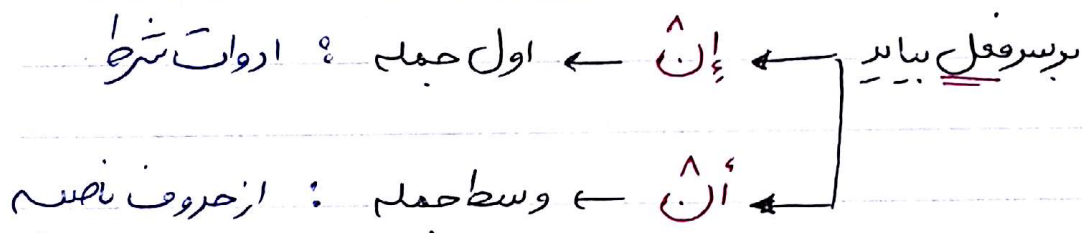 بر سر فعل بیاید ← إنْ ← اول جمله : ادوات شرط
← أنْ ← وسط جمله : از حروف ناصبه